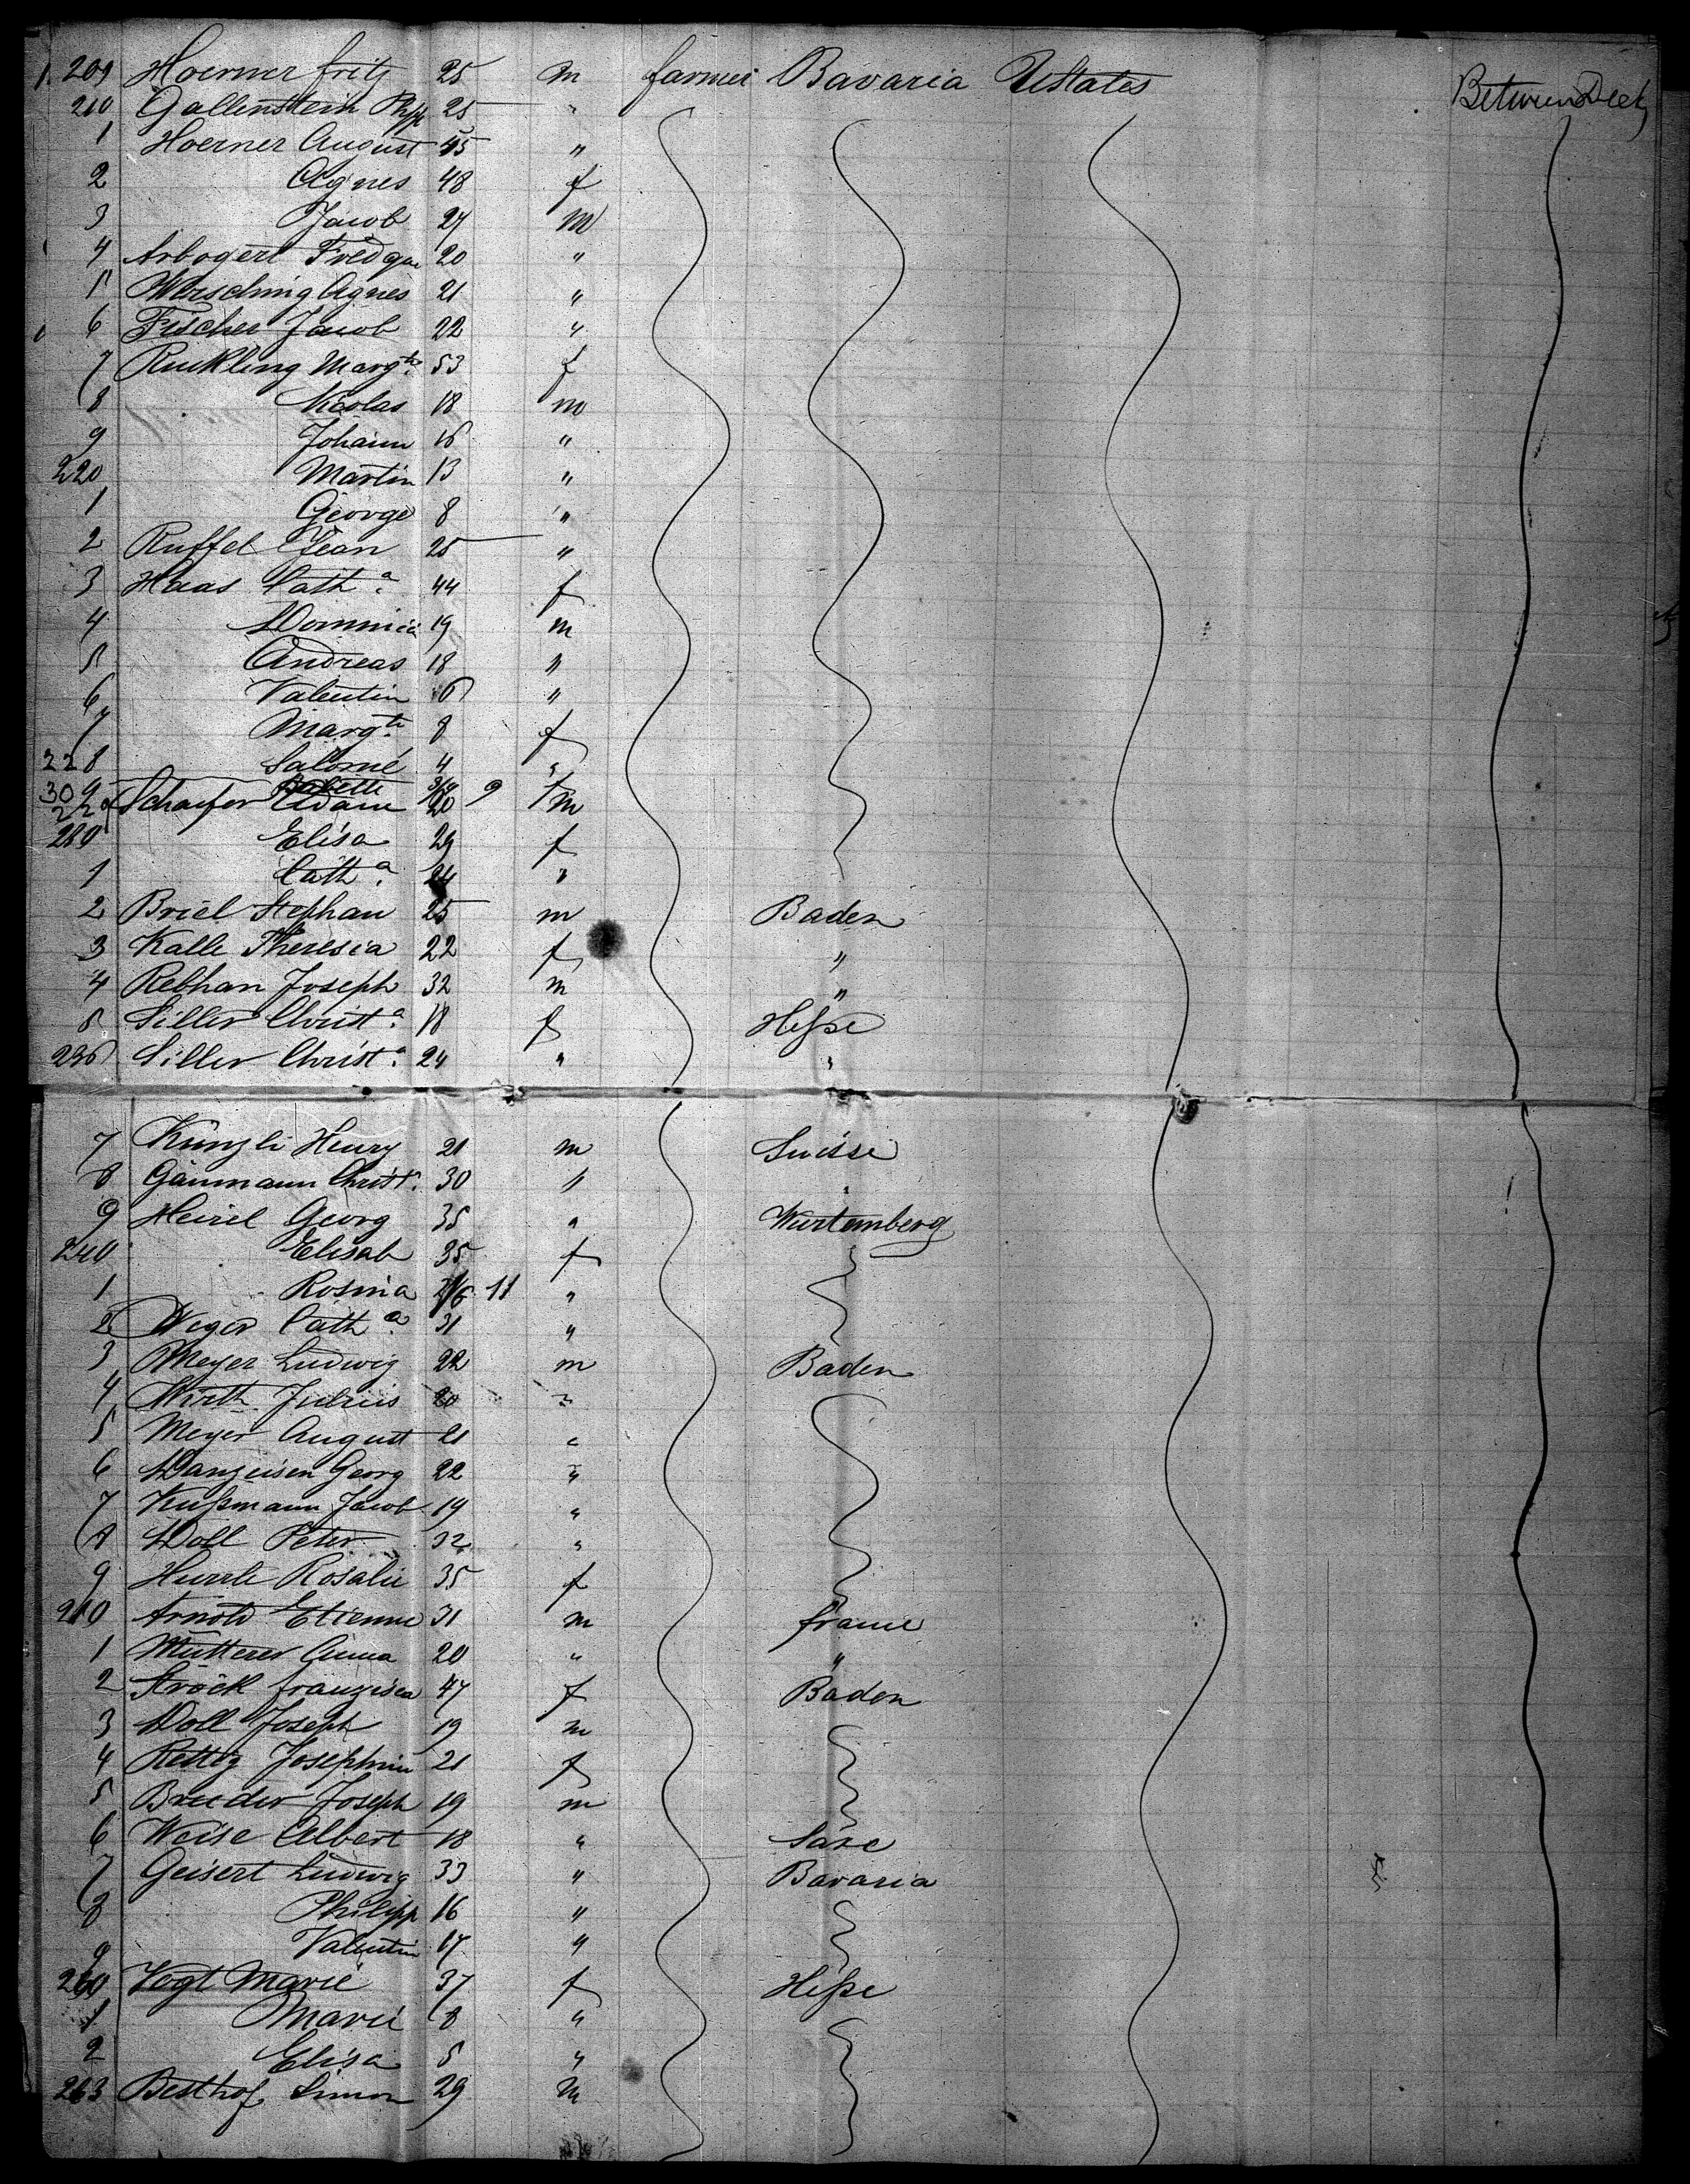 209 Hoerner fritz 25 m farmer Bavaria UStates Between Deck
210 Gallenstein Phpp 25 "
1 Hoerner August 45 "
2 Agnes 48 f
3 Jacob 27 m
4 Arbogert 20 "
5 Wersching Agnes 21 "
6 Fischer Jacob 22 "
7 Ruckling Margth. 53 f
8 Nicolas 18 m
9 Johann 16 "
220 Martin 13 "
1 George 8 "
2 Ruffel Jean 25 "
3 Haas Catha. 44 f
4 Dominic 19 m
5 Andreas 18 "
6 Valentin 16 "
7 Margth. 8 f
228 Salomé 4 "
309 Babette 9 f
229 Schaefer Adam 20 m
230 Elisa 29 f
1 Catha. 24 "
2 Briel Stephan 25 m Baden
3 Kalle Theresia 22 f "
4 Rebhan Joseph 32 m "
5 Siller Christa. 18 f Heße
236 Siller Christa. 24 " "
7 Künzli Henry 21 m Suisse
8 Gaumann Christ. 30 " "
9 Heirel Georg 35 " Wurtemberg
240 Elisab 35 f
1 Rosina 11 "
2 Weger Catha. 31 "
3 Meyer Ludwig 22 m Baden
4 Wirth Julius 20 "
5 Meyer August 21 "
6 Danzeisen Georg 22 "
7 Kußmann Jacob 19 "
8 Doll Peter 32 "
9 Hurrle Rosalie 35 f
250 Arnold Etienne 31 m france
1 Mutterer Anna 20 " "
2 Ströck franzisca 47 f Baden
3 Doll Joseph 19 m
4 Rettig Josephine 21 f
5 Bruder Joseph 19 m
6 Weise Albert 18 " Saxe
7 Geisert Ludwig 33 " Bavaria
8 Philipp 16 "
9 Valentin 17 "
260 Vogt Marie 37 f Heße
1 Marie 8 "
2 Elisa 5 "
263 Besthof Simon 29 m